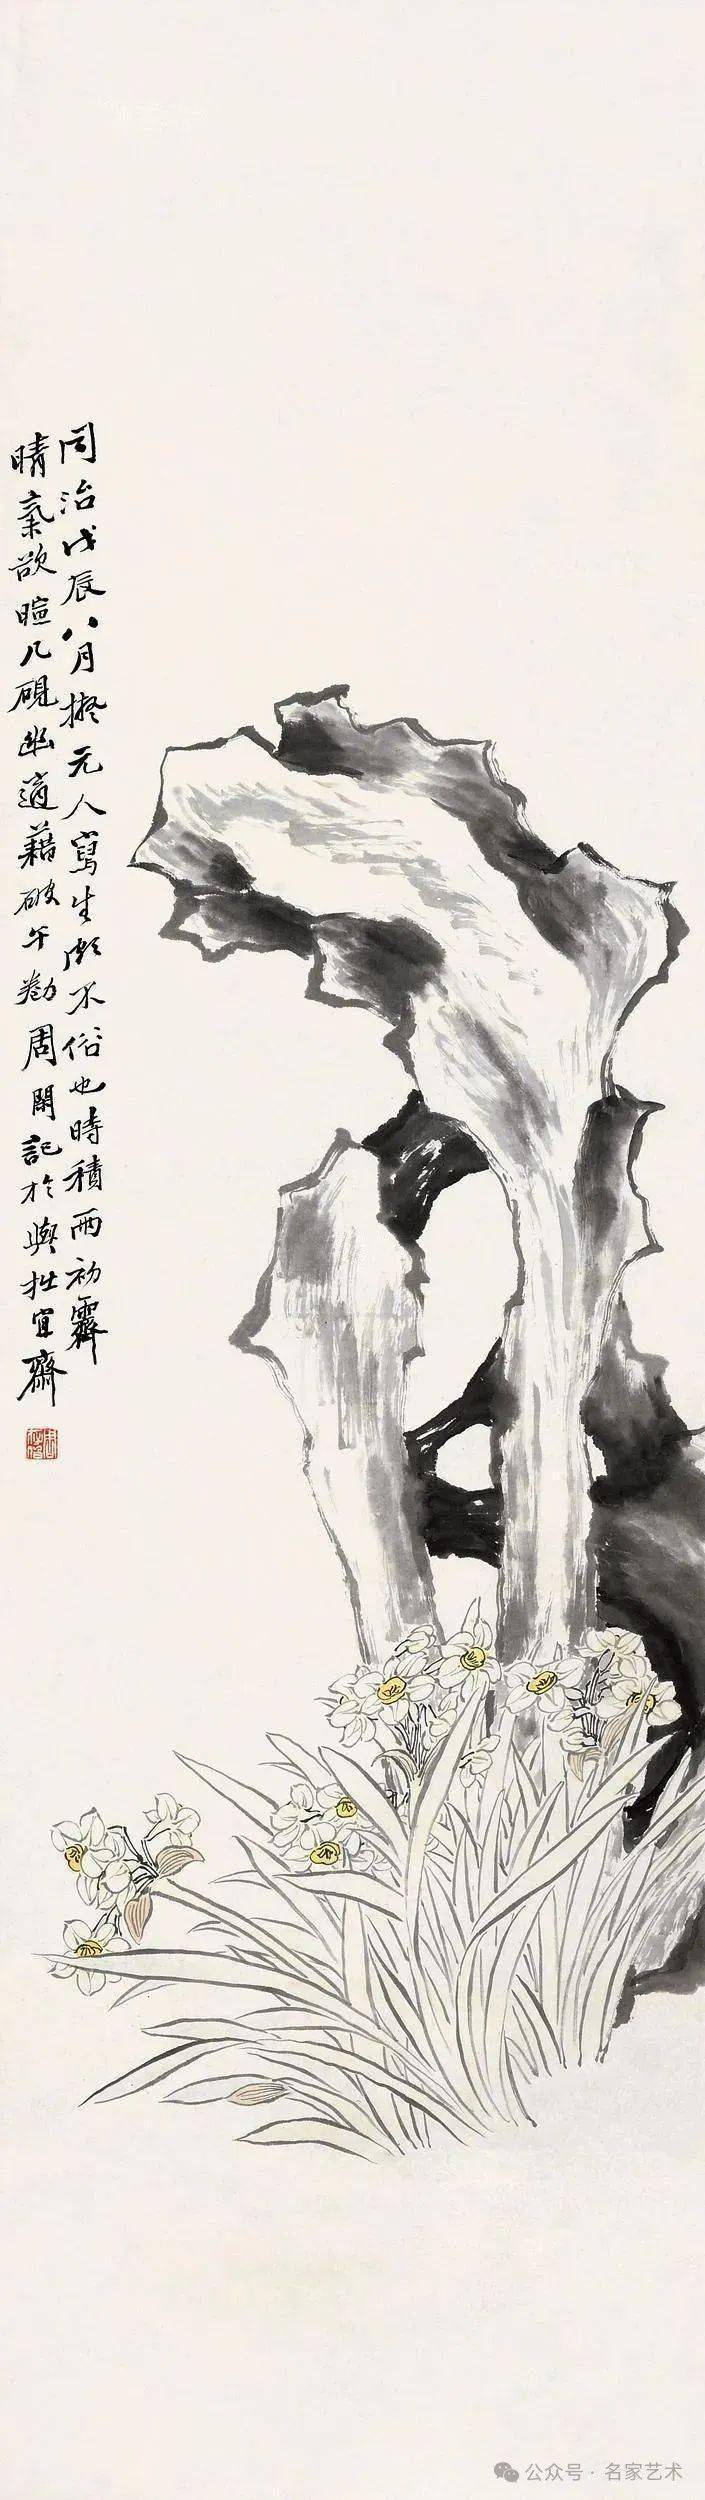 同治戊辰八月擬元人寫生頗不俗也時積雨初霽
晴氣欲暄几硯幽適藉破午勌周閑記於與拙宜齋
周存伯
公众号·名家艺术